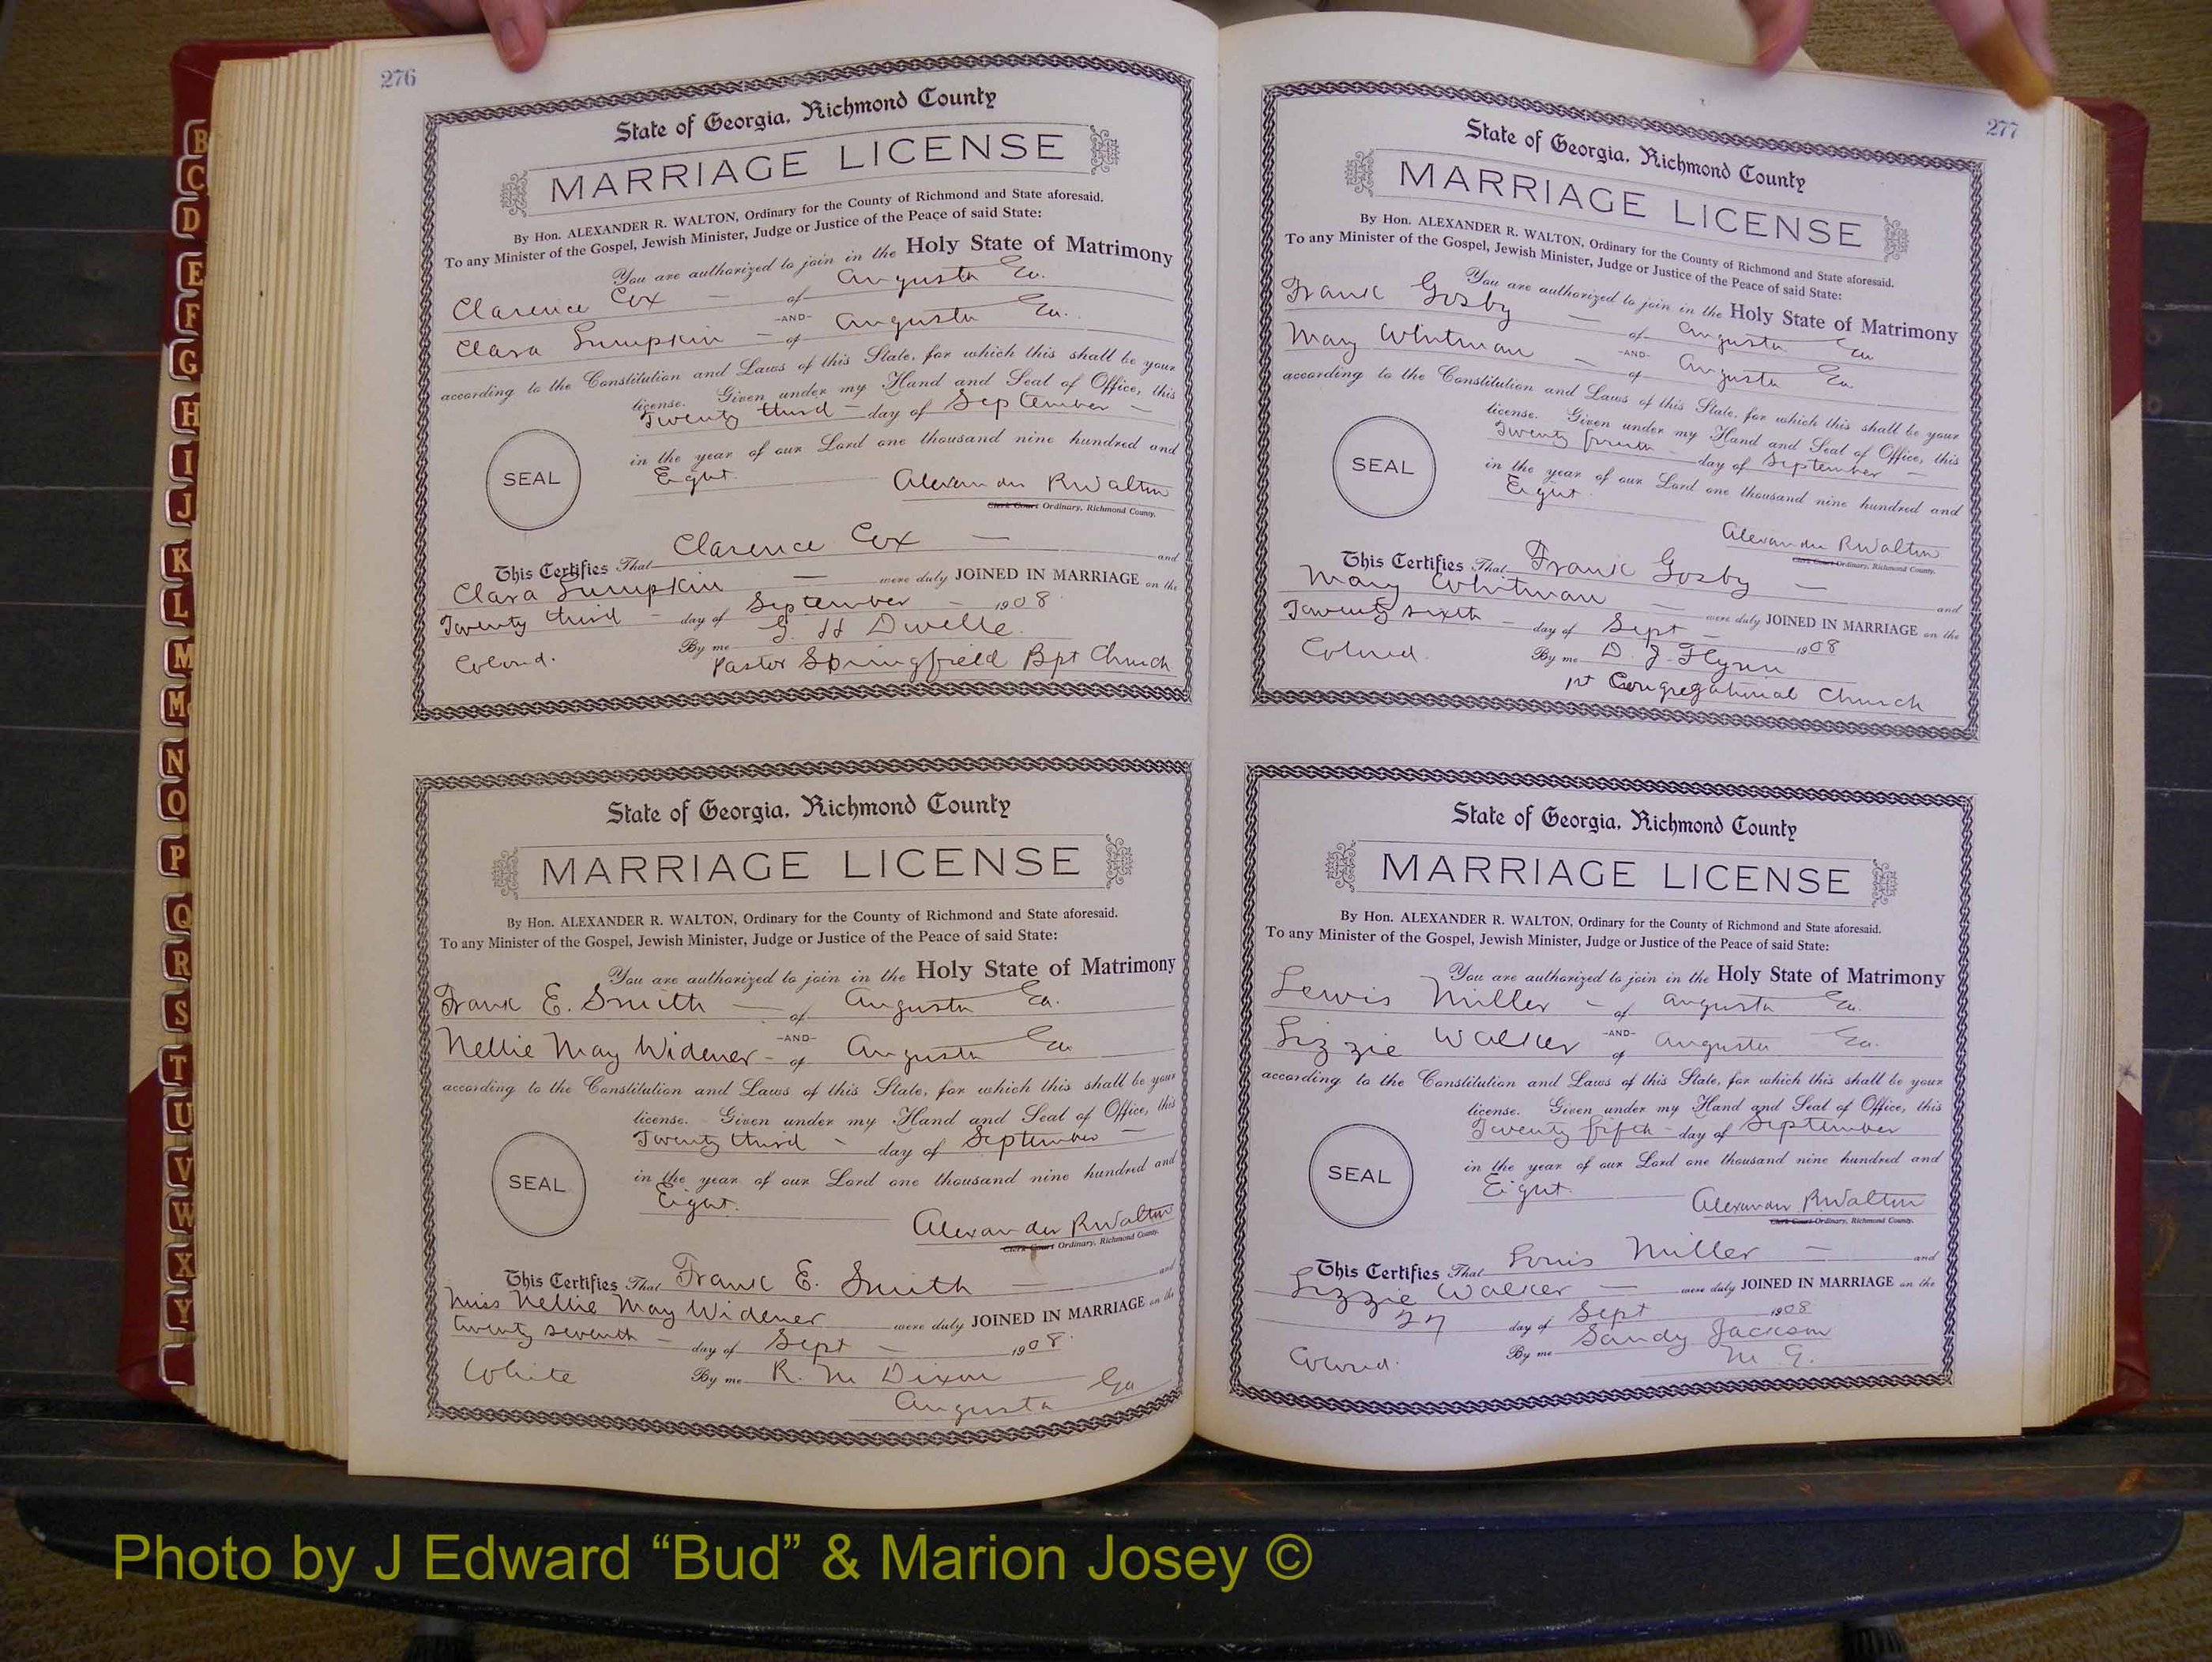 276
State of Georgia, Richmond County
MARRIAGE LICENSE
By Hon. ALEXANDER R. WALTON, Ordinary for the County of Richmond and State aforesaid.
To any Minister of the Gospel, Jewish Minister, Judge or Justice of the Peace of said State:
You are authorized to join in the Holy State of Matrimony
Clarence Cox — of Augusta Ga.
-AND-
Clara Lumpkin — of Augusta Ga.
according to the Constitution and Laws of this State, for which this shall be your
license. Given under my Hand and Seal of Office, this
Twenty third — day of September —
in the year of our Lord one thousand nine hundred and
Eight.
SEAL
Alexander R Walton
Clerk Court Ordinary, Richmond County.
This Certifies That Clarence Cox — and
Clara Lumpkin — were duly JOINED IN MARRIAGE on the
Twenty third — day of September — 1908
By me G. H Dwelle.
Colored. Pastor Springfield Bpt Church
State of Georgia, Richmond County
MARRIAGE LICENSE
By Hon. ALEXANDER R. WALTON, Ordinary for the County of Richmond and State aforesaid.
To any Minister of the Gospel, Jewish Minister, Judge or Justice of the Peace of said State:
You are authorized to join in the Holy State of Matrimony
Frank E. Smith — of Augusta Ga.
-AND-
Nellie May Widener - of Augusta Ga
according to the Constitution and Laws of this State, for which this shall be your
license. Given under my Hand and Seal of Office, this
Twenty third - day of September —
in the year of our Lord one thousand nine hundred and
Eight.
SEAL
Alexander R Walton
Clerk Court Ordinary, Richmond County.
This Certifies That Frank E. Smith — and
Miss Nellie May Widener were duly JOINED IN MARRIAGE on the
twenty seventh — day of Sept — 1908.
White By me R. M Dixon
Augusta Ga
277
State of Georgia, Richmond County
MARRIAGE LICENSE
By Hon. ALEXANDER R. WALTON, Ordinary for the County of Richmond and State aforesaid.
To any Minister of the Gospel, Jewish Minister, Judge or Justice of the Peace of said State:
You are authorized to join in the Holy State of Matrimony
Frank Gosby — of Augusta Ga
-AND-
Mary Whitman — of Augusta Ga.
according to the Constitution and Laws of this State, for which this shall be your
license. Given under my Hand and Seal of Office, this
Twenty fourth - day of September —
in the year of our Lord one thousand nine hundred and
Eight.
SEAL
Alexander R Walton
Clerk Court Ordinary, Richmond County.
This Certifies That Frank Gosby — and
Mary Whitman — were duly JOINED IN MARRIAGE on the
Twenty sixth — day of Sept — 1908
Colored. By me D. J. Flynn
1st Congregational Church
State of Georgia, Richmond County
MARRIAGE LICENSE
By Hon. ALEXANDER R. WALTON, Ordinary for the County of Richmond and State aforesaid.
To any Minister of the Gospel, Jewish Minister, Judge or Justice of the Peace of said State:
You are authorized to join in the Holy State of Matrimony
Lewis Miller - of Augusta Ga.
-AND-
Lizzie Walker of Augusta Ga.
according to the Constitution and Laws of this State, for which this shall be your
license. Given under my Hand and Seal of Office, this
Twenty fifth - day of September
in the year of our Lord one thousand nine hundred and
Eight.
SEAL
Alexander R Walton
Clerk Court Ordinary, Richmond County.
This Certifies That Louis Miller — and
Lizzie Walker — were duly JOINED IN MARRIAGE on the
27 day of Sept 1908
By me Sandy Jackson
Colored. M. G.
B
C
D
E
F
G
H
I
J
K
L
M
Mc
N
O
P
Q
R
S
T
U
V
W
X
Y
Photo by J Edward “Bud” & Marion Josey ©